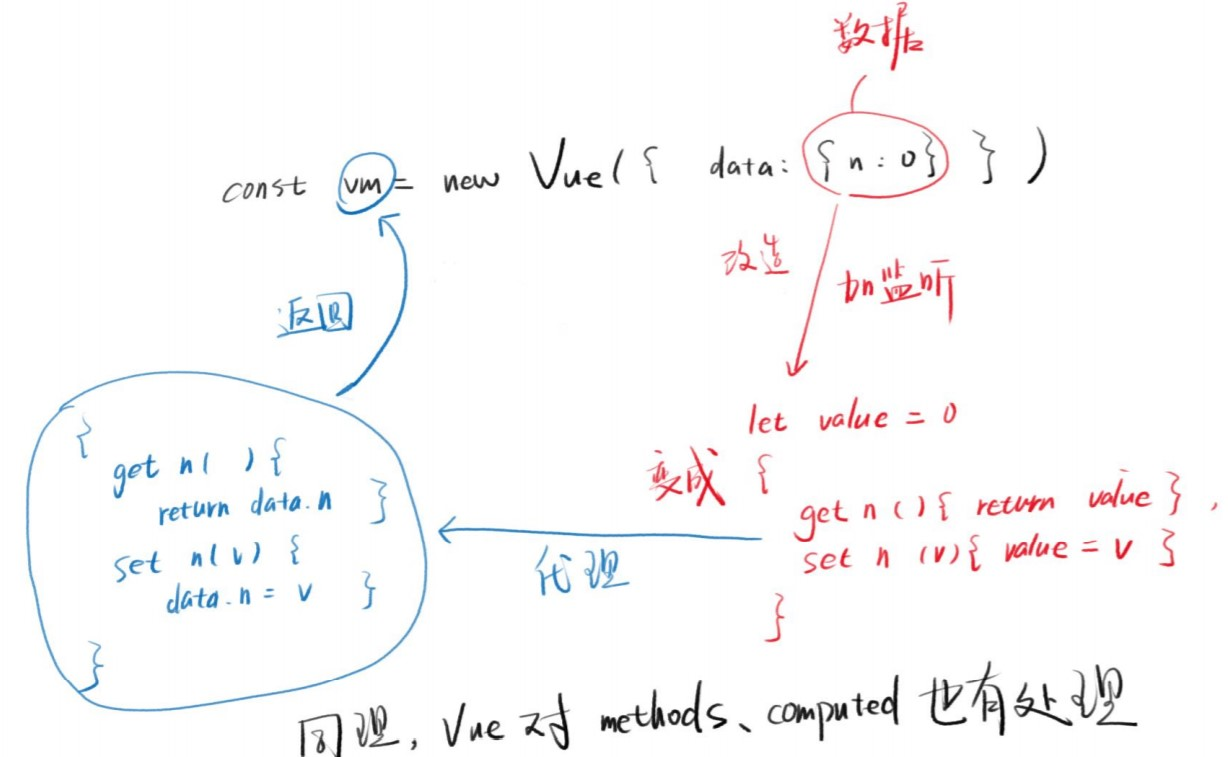 数据
const vm = new Vue({ data: {n: 0} })
改造
加监听
返回
let value = 0
变成 {
get n(){ return value },
set n(v){ value = v }
}
代理
{
get n( ){
return data.n }
set n(v) {
data.n = v }
}
同理, Vue 对 methods、computed 也有处理